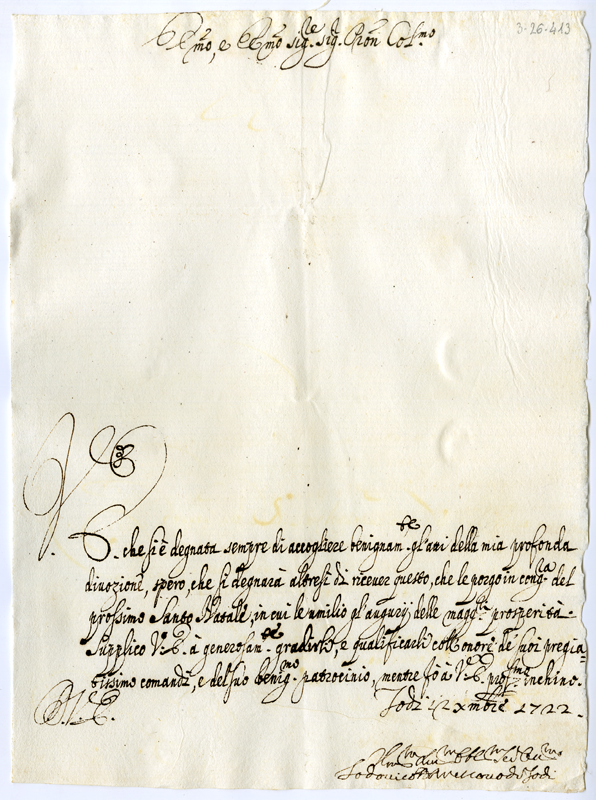 3-26-413
Em̃o, e Rm̃o Sig.re Sig. Pr̃on Col.mo
V. E. che si è degnata sempre di accogliere benignam.te gl'atti della mia profonda
divozione, spero, che si degnarà altresì di ricever questo, che le porgo in cong.ra del
prossimo Santo Natale, in cui le umilio gl'augurij delle magg.ri prosperità.
Supplico V.E. à generosam.te gradirli, e qualificarli coll'onore de' suoi pregia=
tissimo comandi, e del suo benig.mo patrocinio, mentre fò à V.E. prof.ma inchino.
Todi 12 xmbre 1722.